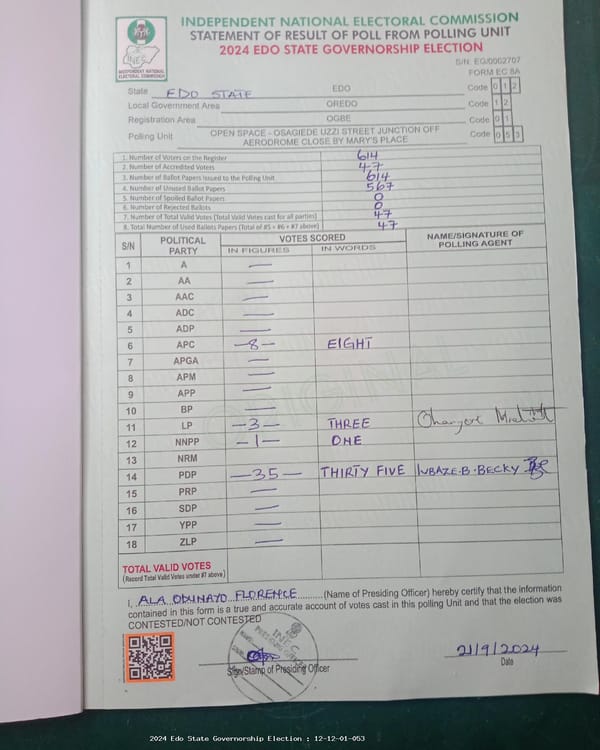 INDEPENDENT NATIONAL ELECTORAL COMMISSION
STATEMENT OF RESULT OF POLL FROM POLLING UNIT
2024 EDO STATE GOVERNORSHIP ELECTION
INEC
INDEPENDENT NATIONAL ELECTORAL COMMISSION
S/N: EG/0002707
FORM EC 8A
State EDO STATE EDO Code 0 1 2
Local Government Area OREDO Code 1 2
Registration Area OGBE Code 0 1
Polling Unit OPEN SPACE - OSAGIEDE UZZI STREET JUNCTION OFF AERODROME CLOSE BY MARY'S PLACE Code 0 5 3
1. Number of Voters on the Register 614
2. Number of Accredited Voters 47
3. Number of Ballot Papers Issued to the Polling Unit 614
4. Number of Unused Ballot Papers 567
5. Number of Spoiled Ballot Papers 0
6. Number of Rejected Ballots 0
7. Number of Total Valid Votes (Total Valid Votes cast for all parties) 47
8. Total Number of Used Ballots Papers (Total of #5 + #6 + #7 above) 47
S/N POLITICAL PARTY VOTES SCORED NAME/SIGNATURE OF POLLING AGENT
IN FIGURES IN WORDS
1 A —
2 AA —
3 AAC —
4 ADC —
5 ADP —
6 APC -8- EIGHT
7 APGA —
8 APM —
9 APP —
10 BP —
11 LP -3- THREE
12 NNPP -1- ONE
13 NRM
14 PDP -35- THIRTY FIVE BECKY
15 PRP —
16 SDP —
17 YPP —
18 ZLP —
TOTAL VALID VOTES
(Record Total Valid Votes under #7 above)
I, ALA ODUNAYO FLORENCE (Name of Presiding Officer) hereby certify that the information
contained in this form is a true and accurate account of votes cast in this polling Unit and that the election was
CONTESTED/NOT CONTESTED
INEC
Sign/Stamp of Presiding Officer
21/9/2024
Date
2024 Edo State Governorship Election : 12-12-01-053